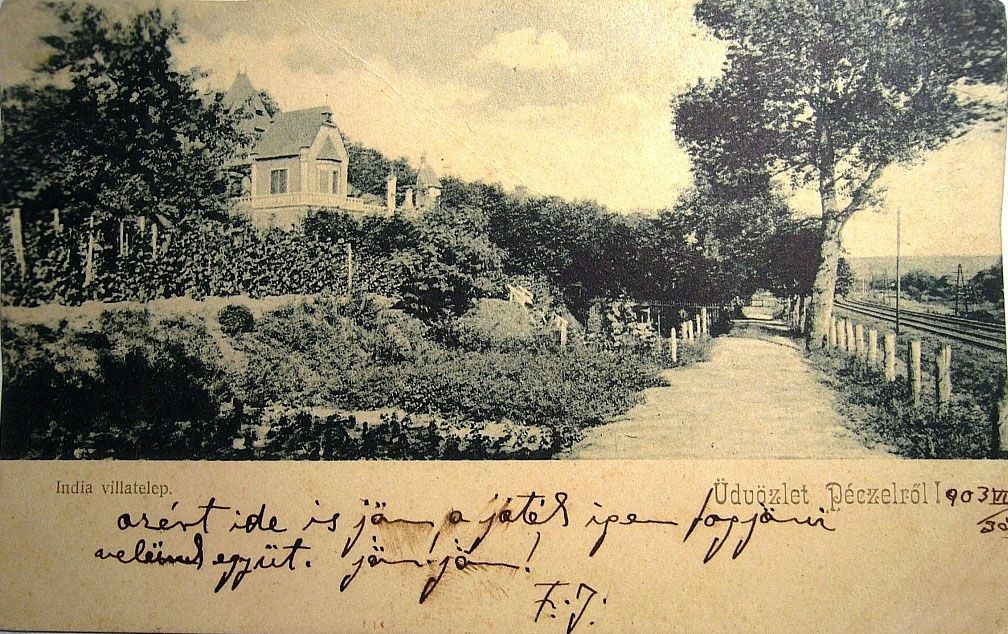 India villatelep.
Üdvözlet Péczelről!
903 VI/30
azért ide is jön a játék igen
velünk együt. jön-jön!
F. J.